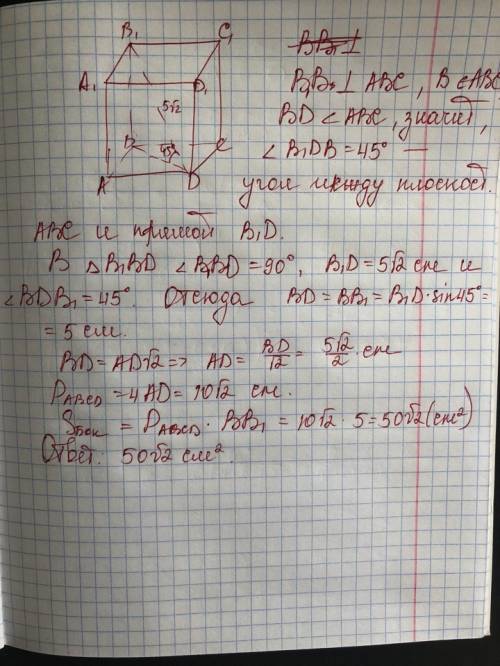 B₁ C₁
A₁ D₁
5√2
B 45° C
A D
BB₁ ⊥
B₁B ⊥ ABC, B ∈ ABC
BD ⊂ ABC, значит,
∠ B₁DB = 45° —
угол между плоскост.
ABC и прямой B₁D.
В △ B₁BD ∠ B₁BD = 90°, B₁D = 5√2 см и
∠ BDB₁ = 45°. Отсюда BD = BB₁ = B₁D · sin45° =
= 5 см.
BD = AD√2 => AD = BD/√2 = 5√2/2 см
P_ABCD = 4AD = 10√2 см.
S_бок = P_ABCD · BB₁ = 10√2 · 5 = 50√2 (см²)
Ответ. 50√2 см².